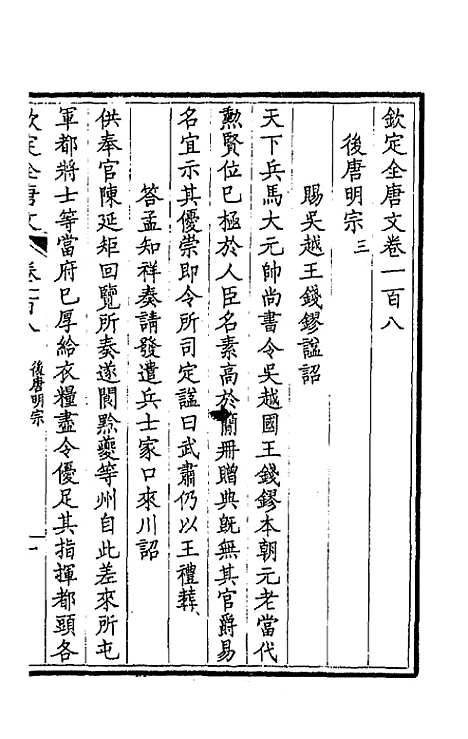 欽定全唐文卷一百八
後唐明宗三
賜吳越王錢鏐諡詔
天下兵馬大元帥尚書令吳越國王錢鏐本朝元老當代
勲賢位已極於人臣名素高於簡冊贈典旣無其官爵易
名宜示其優崇即令所司定諡曰武肅仍以王禮葬
答孟知祥奏請發遣兵士家口來川詔
供奉官陳延矩回覽所奏遂閬黔夔等州自此差來所屯
軍都將士等當府已厚給衣糧盡令優足其指揮都頭各
欽定全唐文 卷一百八 後唐明宗 一